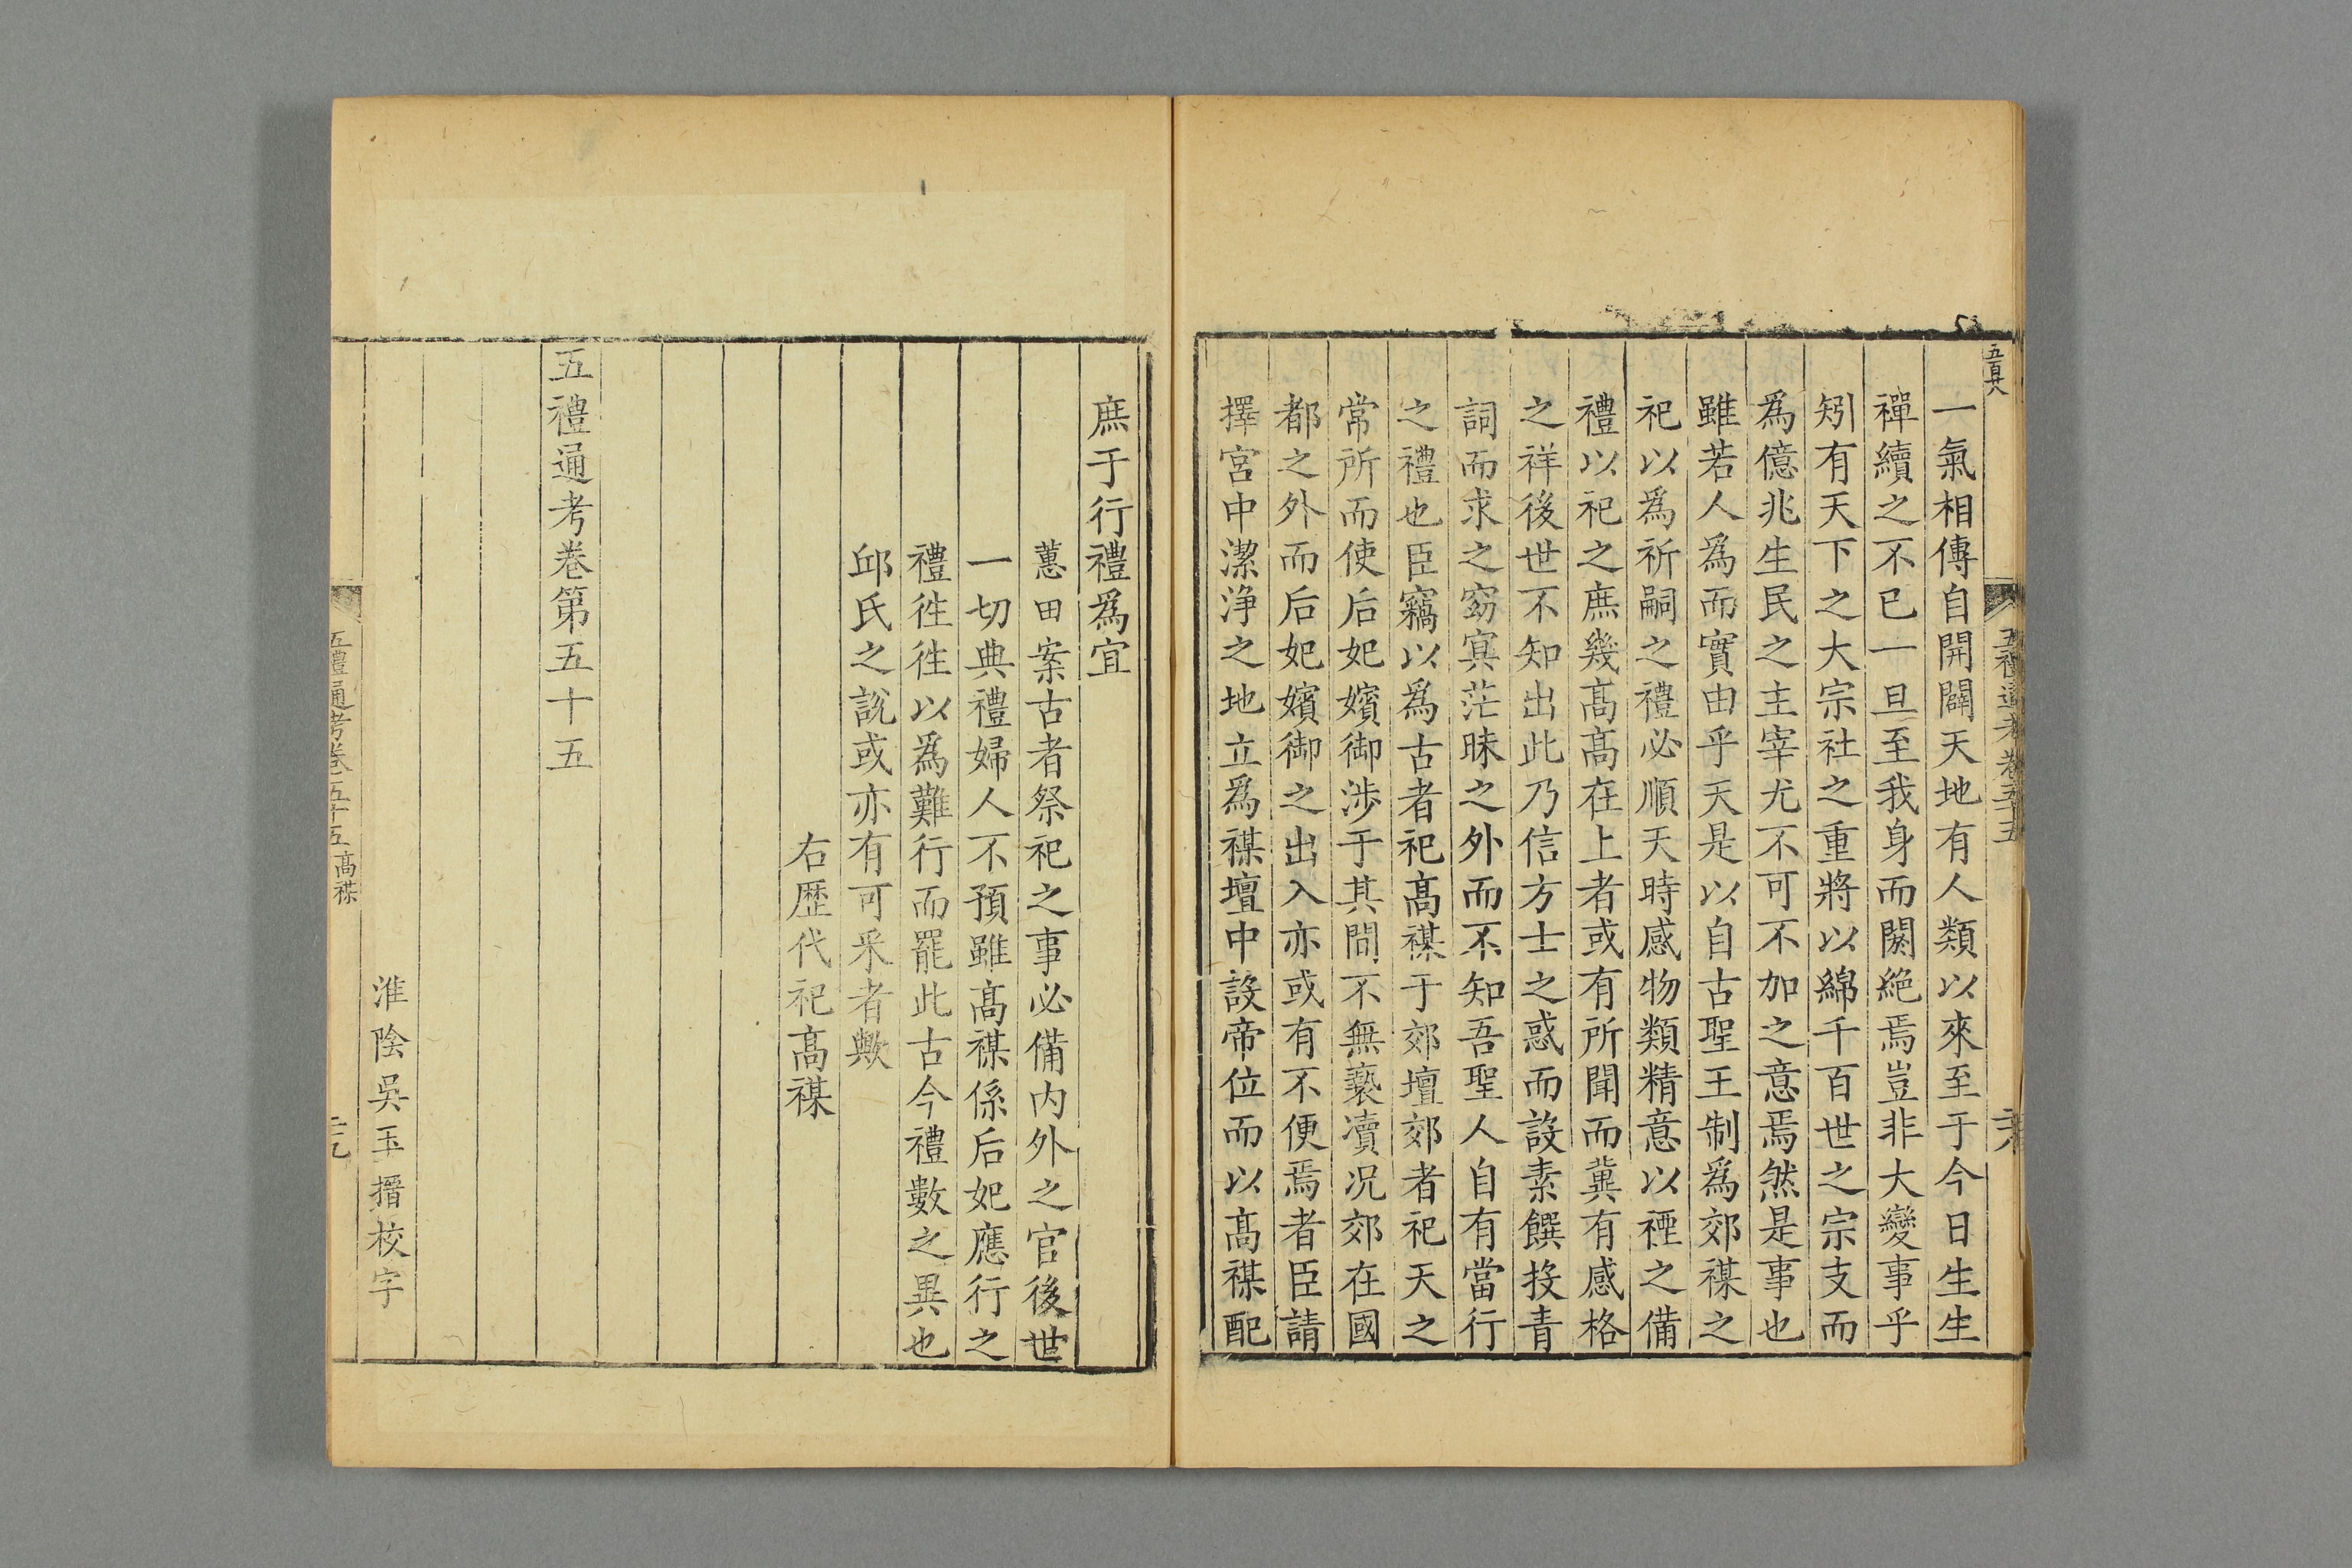 五禮通考卷五十五
一氣相傳自開闢天地有人類以來至于今日生生
禪續之不已一旦至我身而闕絶焉豈非大變事乎
矧有天下之大宗社之重將以綿千百世之宗支而
爲億兆生民之主宰尤不可不加之意焉然是事也
雖若人爲而實由乎天是以自古聖王制爲郊禖之
祀以爲祈嗣之禮必順天時感物類精意以禋之備
禮以祀之庶幾髙髙在上者或有所聞而冀有感格
之祥後世不知出此乃信方士之惑而設素饌投青
詞而求之窈冥茫昧之外而不知吾聖人自有當行
之禮也臣竊以爲古者祀髙禖于郊壇郊者祀天之
常所而使后妃嬪御涉于其間不無䙝瀆况郊在國
都之外而后妃嬪御之出入亦或有不便焉者臣請
擇宮中潔淨之地立爲禖壇中設帝位而以髙禖配
庶于行禮爲宜
蕙田案古者祭祀之事必備内外之官後世
一切典禮婦人不預雖髙禖係后妃應行之
禮徃徃以爲難行而罷此古今禮數之異也
邱氏之説或亦有可采者歟
右歴代祀髙禖
五禮通考卷第五十五
淮陰吳玉搢校字
五禮通考卷五十五 髙禖